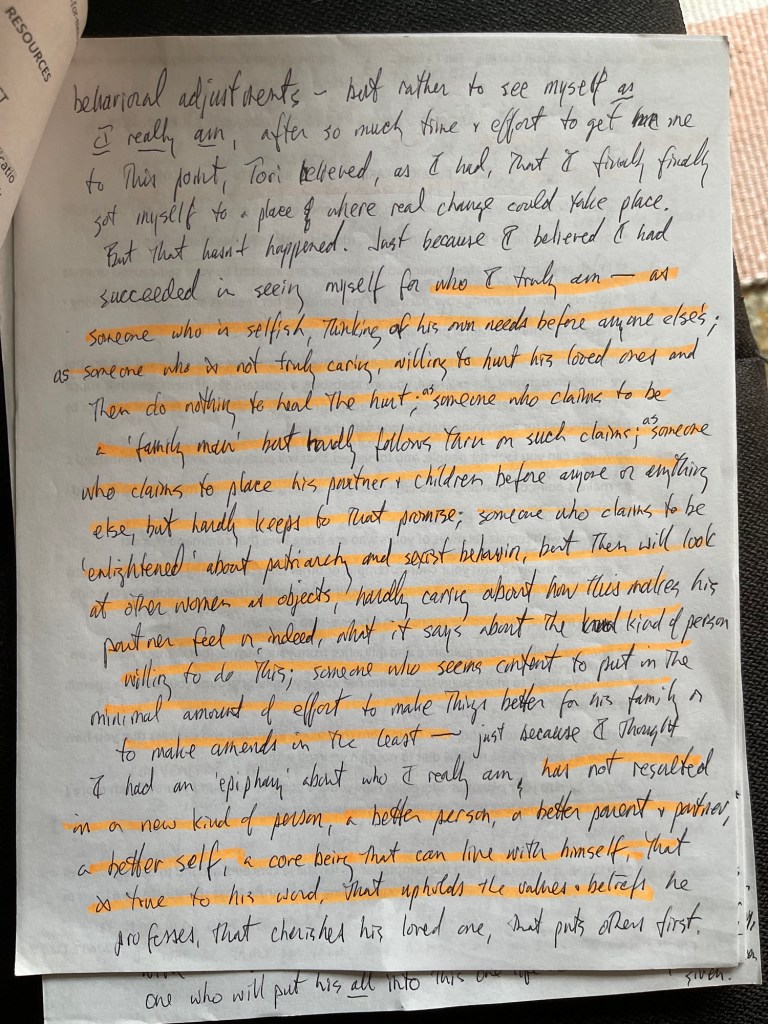 RESOURCES
behavioral adjustments – but rather to see myself as
I really am, after so much time & effort to get me
to this point, Tori believed, as I had, that I finally finally
got myself to a place where real change could take place.
But that hasn't happened. Just because I believed I had
succeeded in seeing myself for who I truly am — as
someone who is selfish, thinking of his own needs before anyone else's;
as someone who is not truly caring, willing to hurt his loved ones and
then do nothing to heal the hurt; as someone who claims to be
a 'family man' but hardly follows thru on such claims; as someone
who claims to place his partner & children before anyone or anything
else, but hardly keeps to that promise; someone who claims to be
'enlightened' about patriarchy and sexist behavior, but then will look
at other women as objects, hardly caring about how this makes his
partner feel or, indeed, what it says about the kind of person
willing to do this; someone who seems content to put in the
minimal amount of effort to make things better for his family or
to make amends in the least — just because I thought
I had an 'epiphany' about who I really am, has not resulted
in a new kind of person, a better person, a better parent & partner,
a better self, a core being that can live with himself, that
is true to his word, that upholds the values & beliefs he
professes, that cherishes his loved one, that puts others first.
one who will put his all into this one
given.